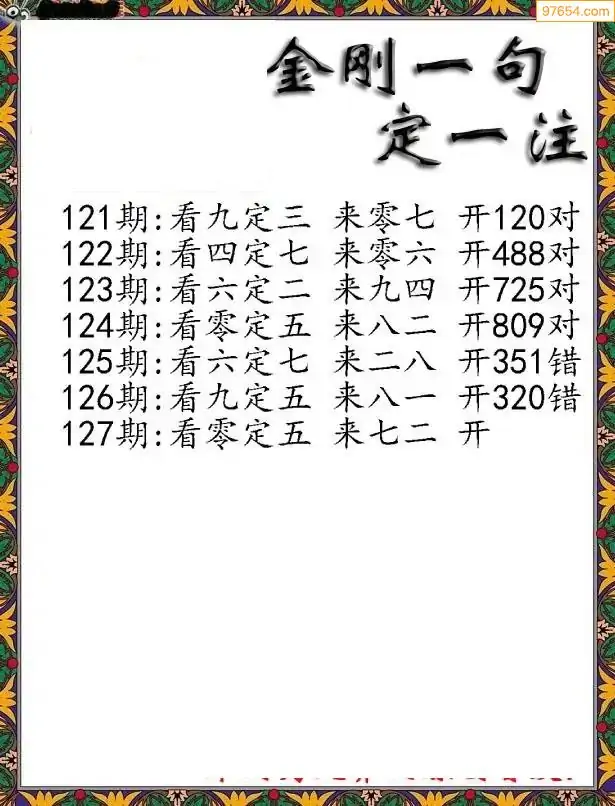 97654.com
金刚一句
定一注
121期:看九定三 来零七 开120对
122期:看四定七 来零六 开488对
123期:看六定二 来九四 开725对
124期:看零定五 来八二 开809对
125期:看六定七 来二八 开351错
126期:看九定五 来八一 开320错
127期:看零定五 来七二 开